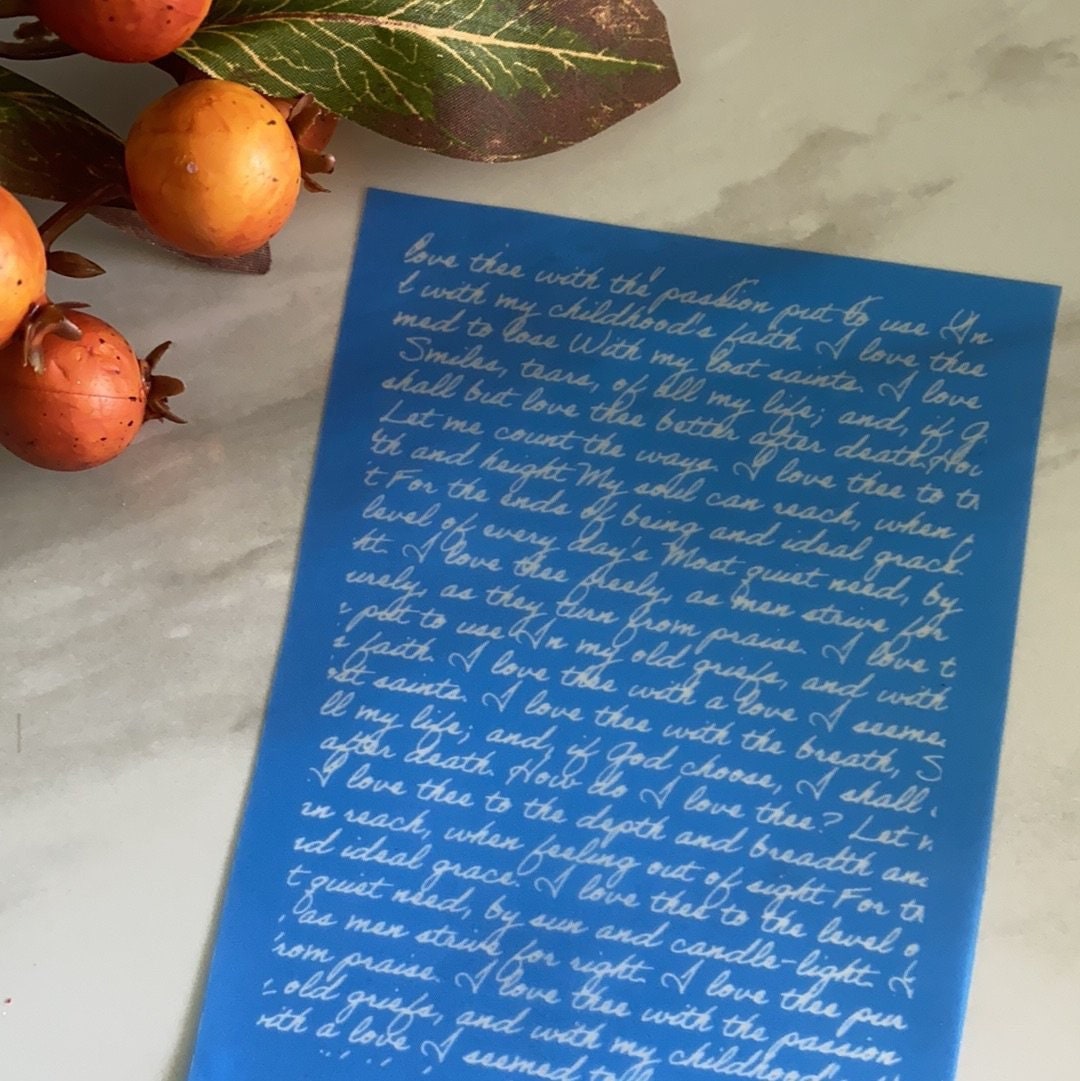 love thee with the passion put to use In
l with my childhood's faith. I love thee
med to lose With my lost saints. I love
Smiles, tears, of all my life; and, if G
shall but love thee better after death. Ho
Let me count the ways. I love thee to t
th and height My soul can reach, when
t For the ends of being and ideal grace.
level of every day's Most quiet need, by
ht. I love thee freely, as men strive for
urely, as they turn from praise. I love t
put to use In my old griefs, and with
faith. I love thee with a love I seeme
st saints. I love thee with the breath, S
ll my life; and, if God choose, I shall
after death. How do I love thee? Let
I love thee to the depth and breadth an
n reach, when feeling out of sight For t
nd ideal grace. I love thee to the level o
t quiet need, by sun and candle-light. I
as men strive for right. I love thee pur
rom praise. I love thee with the passion
old griefs, and with my childhood'
ith a love I seemed to l